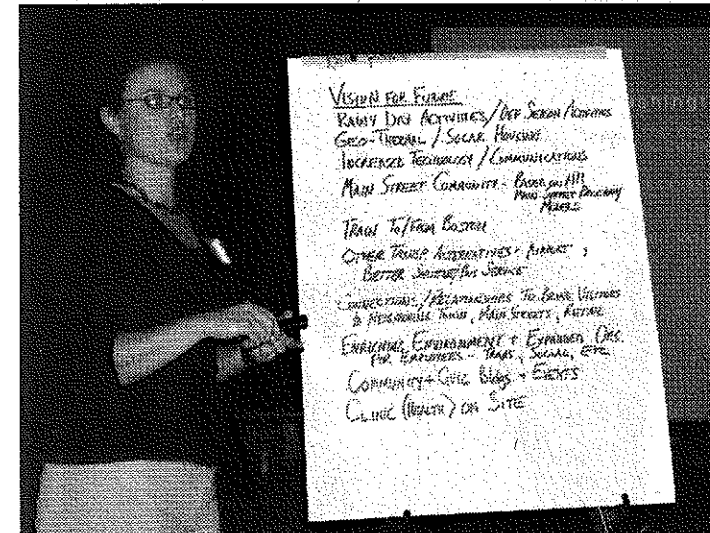 VISION FOR FUTURE
RAINY DAY ACTIVITIES / OFF SEASON /
GEO-THERMAL / SOLAR HOUSING
INCREASED TECHNOLOGY / COMMUNICATIONS
MAIN STREET COMMUNITY - BASED ON NH
MAIN STREET PROGRAM
MODELS
TRAIN TO/FROM BOSTON
OTHER TRANSP ALTERNATIVES - AIRPORT,
BETTER SHUTTLE/BUS SERVICE
CONNECTIONS/RELATIONSHIPS TO BRING VISITORS
TO NEIGHBORING TOWNS, MAIN STREETS, RETAIL
ENRICHING ENVIRONMENT + EXPANDED OPS.
FOR EMPLOYEES - TRANS, SOCIAL, ETC
COMMUNITY + CIVIC BLDGS + EVENTS
CLINIC (HEALTH) ON SITE